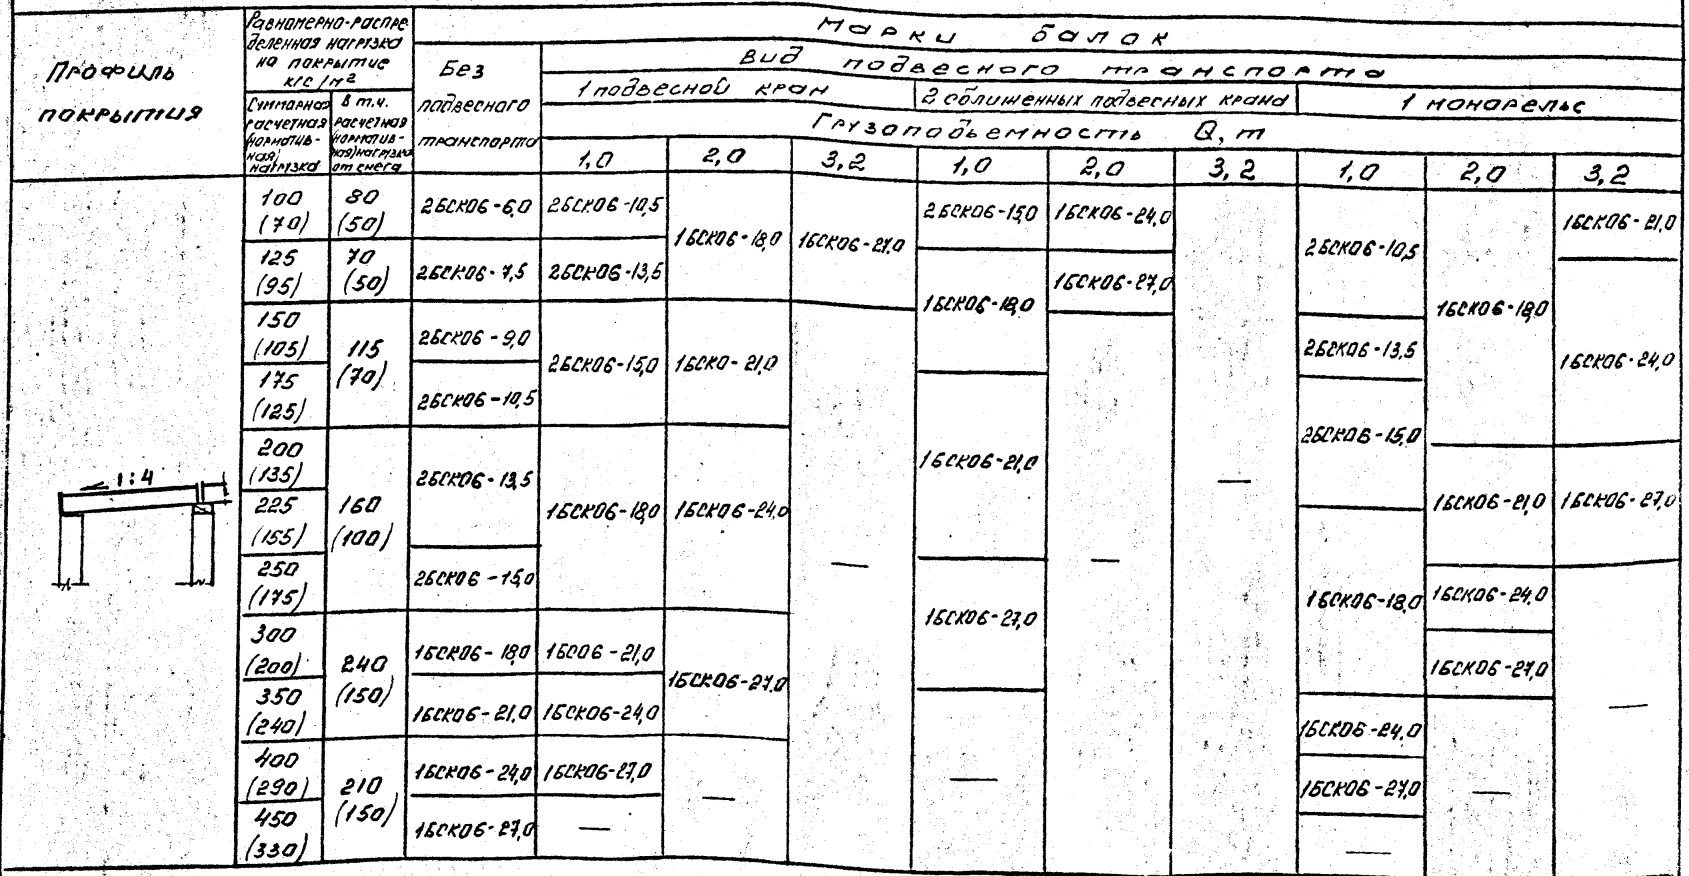 Профиль
покрытия
Равномерно-распре
деленная нагрузка
на покрытие
кгс/м²
Суммарная
расчетная
(норматив-
ная)
нагрузка
в т.ч.
расчетная
(норматив-
ная) нагрузка
от снега
Марки балок
Без
подвесного
транспорта
Вид подвесного транспорта
1 подвесной кран
2 сближенных подвесных крана
1 монорельс
Грузоподъемность Q, т
1,0 2,0 3,2 1,0 2,0 3,2 1,0 2,0 3,2
100
(70)
80
(50)
2БСК06-6,0
2БСК06-10,5
1БСК06-18,0
1БСК06-27,0
2БСК06-15,0
1БСК06-24,0
2БСК06-10,5
1БСК06-18,0
1БСК06-21,0
125
(95)
70
(50)
2БСК06-7,5
2БСК06-13,5
1БСК06-18,0
1БСК06-27,0
150
(105)
115
(70)
2БСК06-9,0
2БСК06-15,0
1БСК0-21,0
2БСК06-13,5
1БСК06-24,0
175
(125)
2БСК06-10,5
1БСК06-21,0
—
2БСК06-15,0
1:4
200
(135)
160
(100)
2БСК06-13,5
1БСК06-18,0
1БСК06-24,0
1БСК06-21,0
1БСК06-27,0
225
(155)
—
—
250
(175)
2БСК06-15,0
1БСК06-27,0
1БСК06-18,0
1БСК06-24,0
300
(200)
240
(150)
1БСК06-18,0
1БС06-21,0
1БСК06-27,0
1БСК06-27,0
350
(240)
1БСК06-21,0
1БСК06-24,0
1БСК06-24,0
—
400
(290)
210
(150)
1БСК06-24,0
1БСК06-27,0
—
—
1БСК06-27,0
—
450
(330)
1БСК06-27,0
—
—